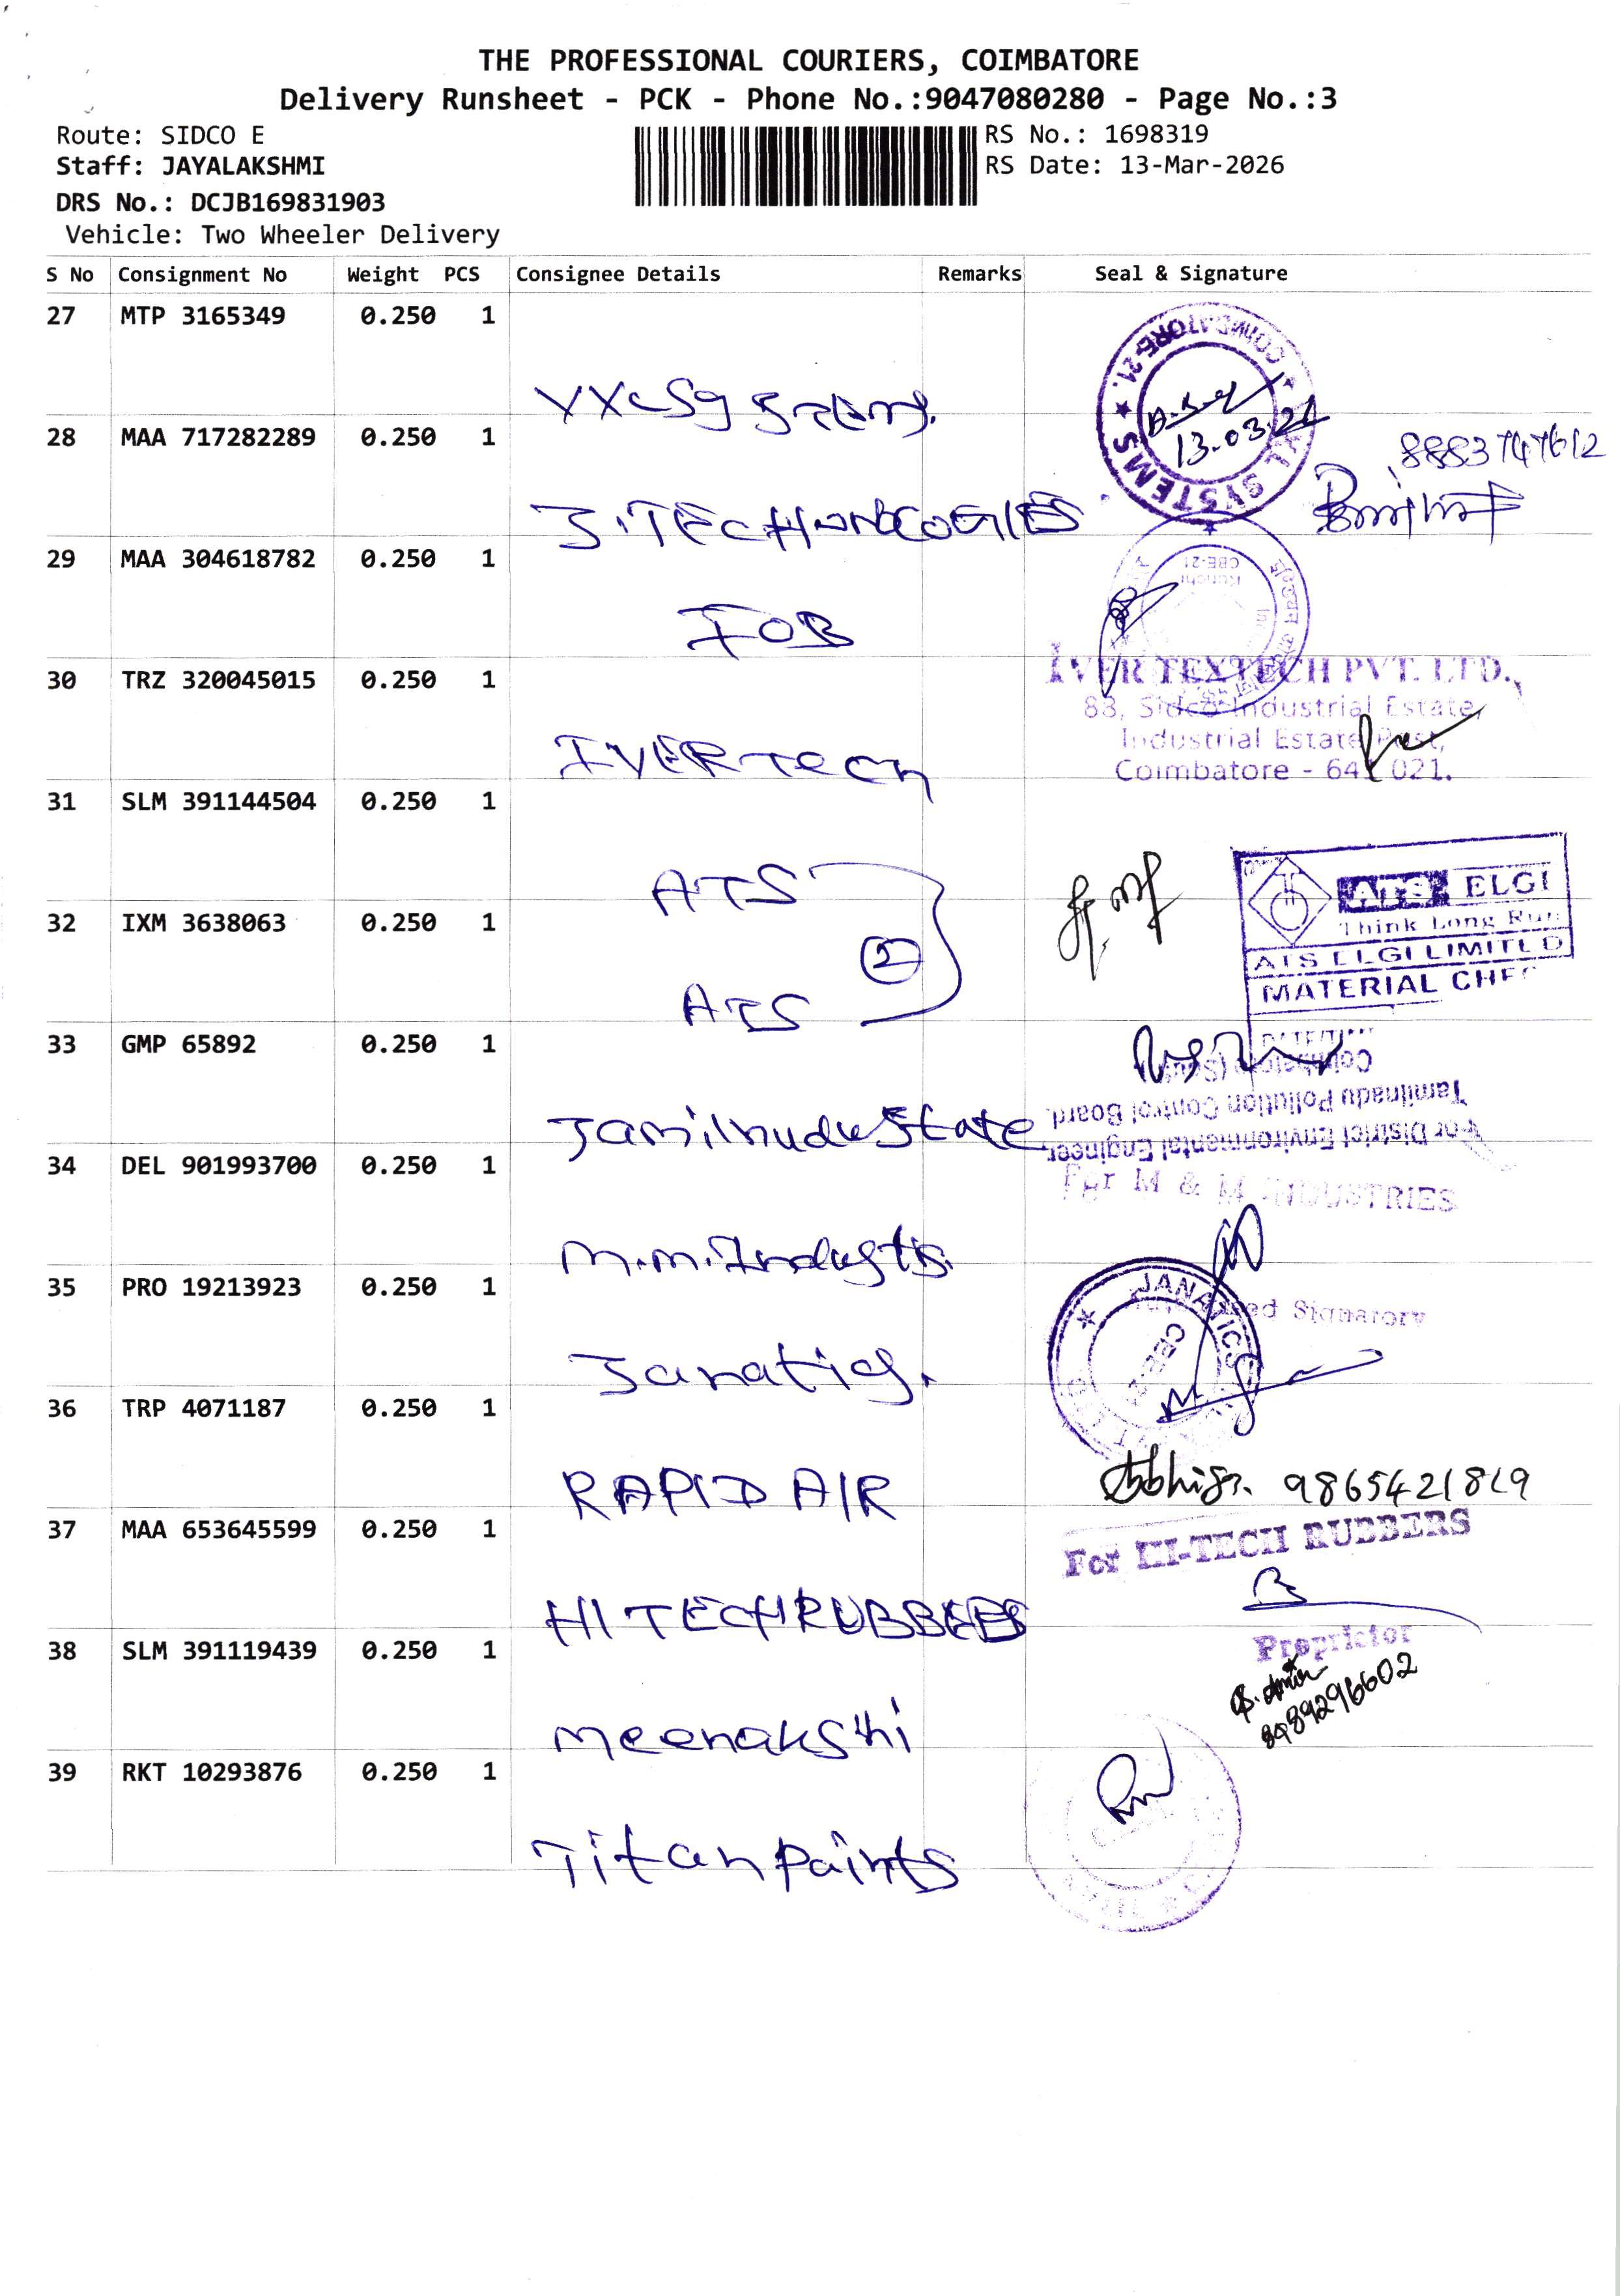 THE PROFESSIONAL COURIERS, COIMBATORE
Delivery Runsheet - PCK - Phone No.:9047080280 - Page No.:3
Route: SIDCO E
Staff: JAYALAKSHMI
DRS No.: DCJB169831903
Vehicle: Two Wheeler Delivery
RS No.: 1698319
RS Date: 13-Mar-2026
S No Consignment No Weight PCS Consignee Details Remarks Seal & Signature
27 MTP 3165349 0.250 1
COIMBATORE-21. SYSTEMS
13.03.26
28 MAA 717282289 0.250 1
8883747612
29 MAA 304618782 0.250 1
IOB
CBE-21
30 TRZ 320045015 0.250 1
IVERTech
IVER TEXTECH PVT. LTD.,
83, Sidco Industrial Estate,
Industrial Estate Post,
Coimbatore - 641 021.
31 SLM 391144504 0.250 1
ATS
32 IXM 3638063 0.250 1
2
ATS
ATS ELGI
Think Long Run
ATS ELGI LIMITED
MATERIAL CHEC
33 GMP 65892 0.250 1
Tamilnudu State
For District Environmental Engineer,
Tamilnadu Pollution Control Board,
34 DEL 901993700 0.250 1
M.M. Industis.
For M & M INDUSTRIES
Authorised Signatory
35 PRO 19213923 0.250 1
Janatics.
JANATICS
CBE-21
36 TRP 4071187 0.250 1
RAPID AIR
9865421819
37 MAA 653645599 0.250 1
HI TECH RUBBERS
For HI-TECH RUBBERS
Proprietor
38 SLM 391119439 0.250 1
Meenakshi
8989296602
39 RKT 10293876 0.250 1
Titan Paints